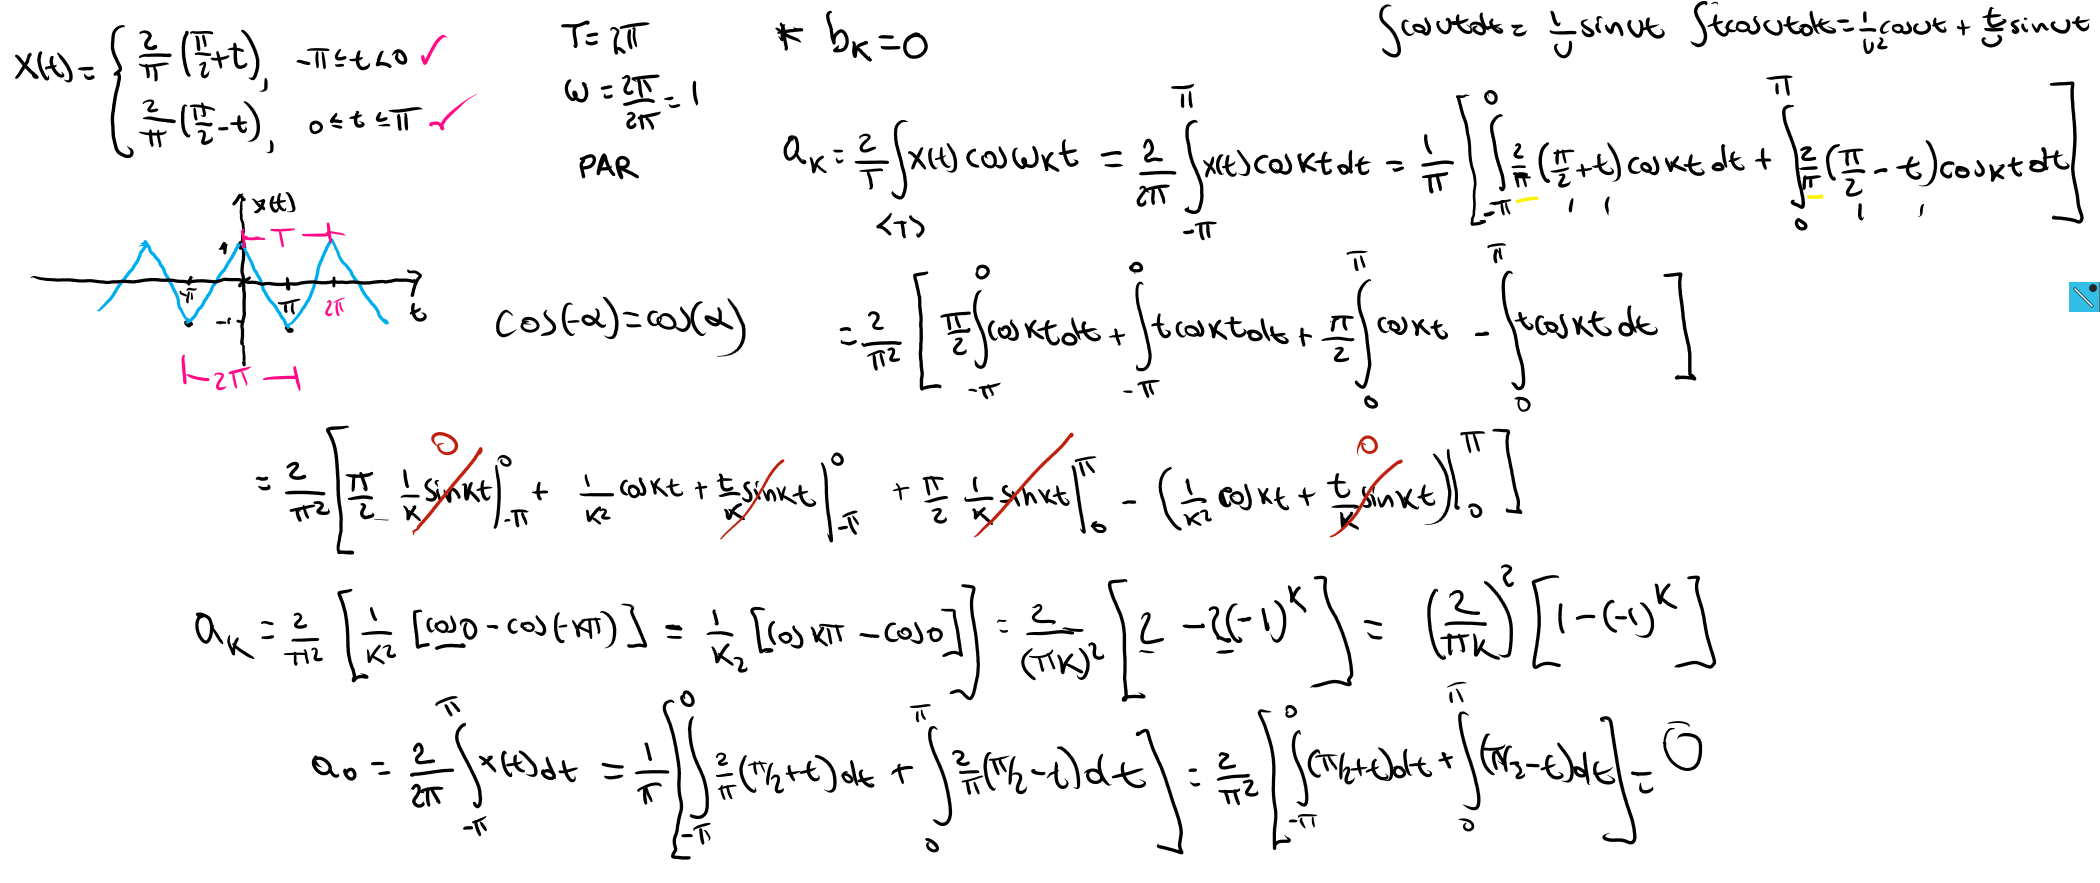 x(t) = { 2/π (π/2 + t), -π ≤ t < 0 ✓
2/π (π/2 - t), 0 ≤ t ≤ π ✓
T = 2π
ω = 2π/2π = 1
PAR
* bₖ = 0
∫cos ut dt = 1/u sin ut ∫t cos ut dt = 1/u² cos ut + t/u sin ut
aₖ = 2/T ∫_<T> x(t) cos ωkt = 2/2π ∫_-π^π x(t) cos kt dt = 1/π [ ∫_-π^0 2/π (π/2 + t) cos kt dt + ∫_0^π 2/π (π/2 - t) cos kt dt ]
x(t)
T
1
-π π 2π t
-1
2π
cos(-α) = cos(α)
= 2/π² [ π/2 ∫_-π^0 cos kt dt + ∫_-π^0 t cos kt dt + π/2 ∫_0^π cos kt - ∫_0^π t cos kt dt ]
0 0
= 2/π² [ π/2 1/k sin kt |_-π^0 + 1/k² cos kt + t/k sin kt |_-π^0 + π/2 1/k sin kt |_0^π - (1/k² cos kt + t/k sin kt) |_0^π ]
aₖ = 2/π² [ 1/k² [cos 0 - cos(-kπ)] = 1/k₂ [cos kπ - cos 0] ] = 2/(πk)² [ 2 - 2(-1)^k ] = (2/πk)² [ 1 - (-1)^k ]
a₀ = 2/2π ∫_-π^π x(t) dt = 1/π [ ∫_-π^0 2/π (π/2 + t) dt + ∫_0^π 2/π (π/2 - t) dt ] = 2/π² [ ∫_-π^0 (π/2 + t) dt + ∫_0^π (π/2 - t) dt ] = 0